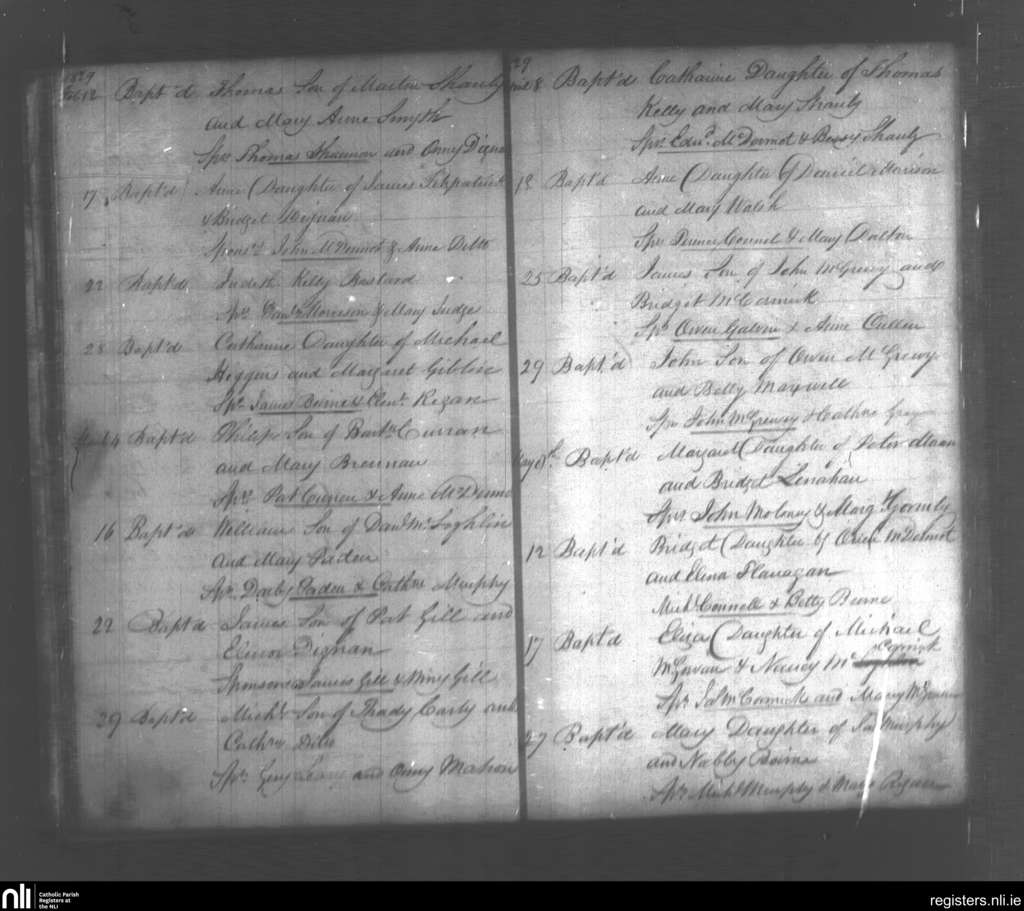 1829
Feb 12 Bapt'd Thomas Son of Martin Shanly
and Mary Anne Smyth
Sprs Thomas Shannon and Anny Dignan
17 Bapt'd Anne Daughter of James Fitzpatrick
& Bridget Dignan
Sponsrs John McDermot & Anne Ditto
22 Bapt'd Judith Kelly Bastard
Sprs Danl Morrison & Mary Judge
28 Bapt'd Catharine Daughter of Michael
Higgins and Margaret Giblin
Sprs James Beirne & Elenr Regan
14 Bapt'd Philip Son of Bartw Curran
and Mary Brennan
Sprs Pat Curren & Anne McDermo
16 Bapt'd William Son of Danl McLoghlin
and Mary Paden
Sprs Darby Paden & Cathne Murphy
22 Bapt'd James Son of Pat Gill and
Elinor Dignan
Sponsors James Gill & Winy Gill
29 Bapt'd Michl Son of Thady Carly and
Cathne Ditto
Sprs and Anny Mahon
29
8 Bapt'd Catharine Daughter of Thomas
Kelly and Mary Shanly
Sprs Edwd McDermot & Bessy Shanly
13 Bapt'd Anne Daughter of Daniel Morrison
and Mary Walsh
Sprs Connel & Mary Dalton
25 Bapt'd James Son of John McGrevy and
Bridget McCormick
Sprs Owen Galvin & Anne Cullen
29 Bapt'd John Son of Owen McGrevy
and Betty Maxwell
Sprs John McGrevey & Cathne
May 8th Bapt'd Margaret Daughter of Peter Moran
and Bridget Lenahan
Sprs John Moloney & Margt Gormly
12 Bapt'd Bridget Daughter of Owen McDermot
and Elena Flanagan
Michl Connell & Betty Beirne
17 Bapt'd Eliza Daughter of Michael
McGovan & Nancy McCormick
Sprs Jas McCormick and Mary
27 Bapt'd Mary Daughter of Jas Murphy
and Nabby Beirne
Sprs Michl Murphy & Mary Regan
nli
Catholic Parish
Registers at
the NLI
registers.nli.ie